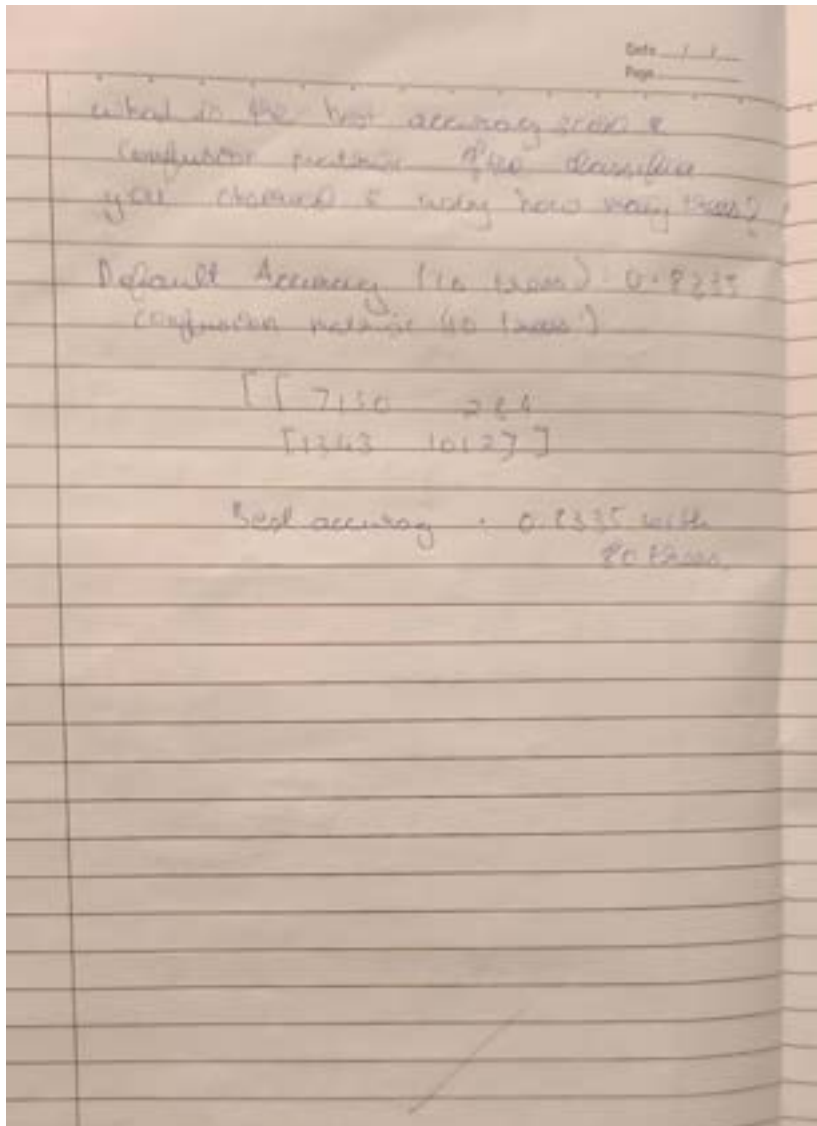 Date / /
Page
what is the best accuracy score &
confusion matrix of the classifier
you observed & using how many trees?
Default Accuracy (10 trees): 0.8235
confusion matrix (10 trees)
[[ 7150 284
[1343 10127]
Best accuracy : 0.8335 with
80 trees.